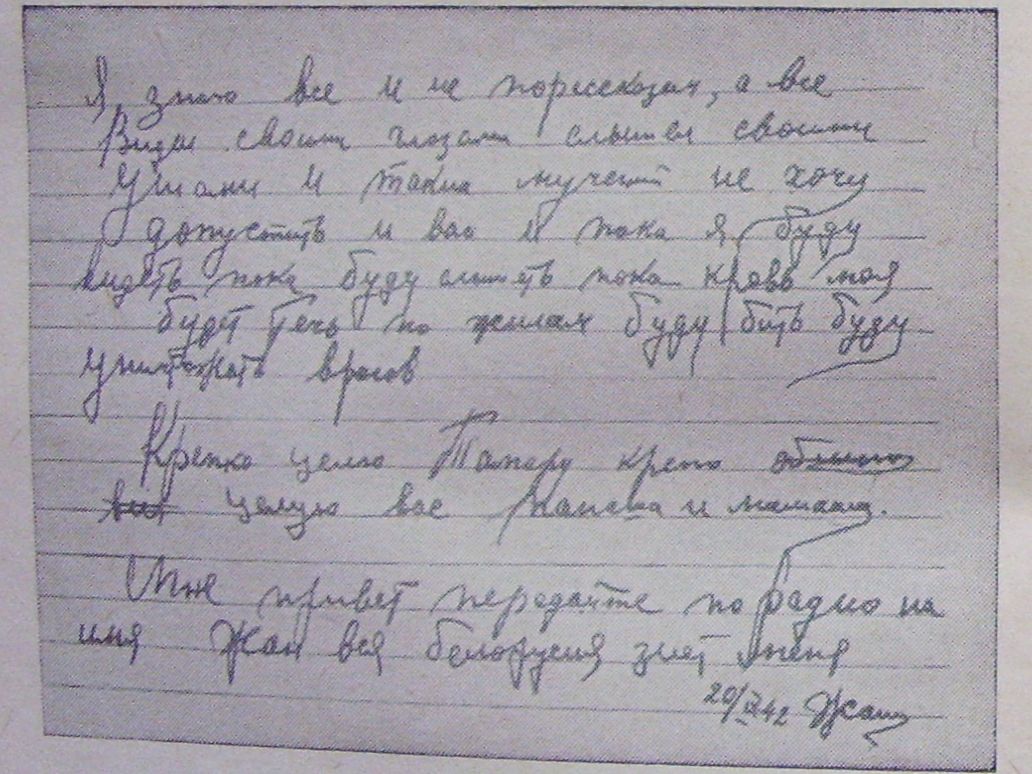 Я знаю все и не порассказах, а все
Видел своими глазами слышел своими
Ушами и таких мучений не хочу
допустить и вас и пока я буду
видеть пока буду слышеть пока кровь моя
будет течь по жилам буду бить буду
уничтожать врагов
Крепко целую Тамару крепо
целую вас папаша и мамаша.
Мне привет передайте по радио на
имя Жан вся белорусия знает меня
20/IX42 Жан